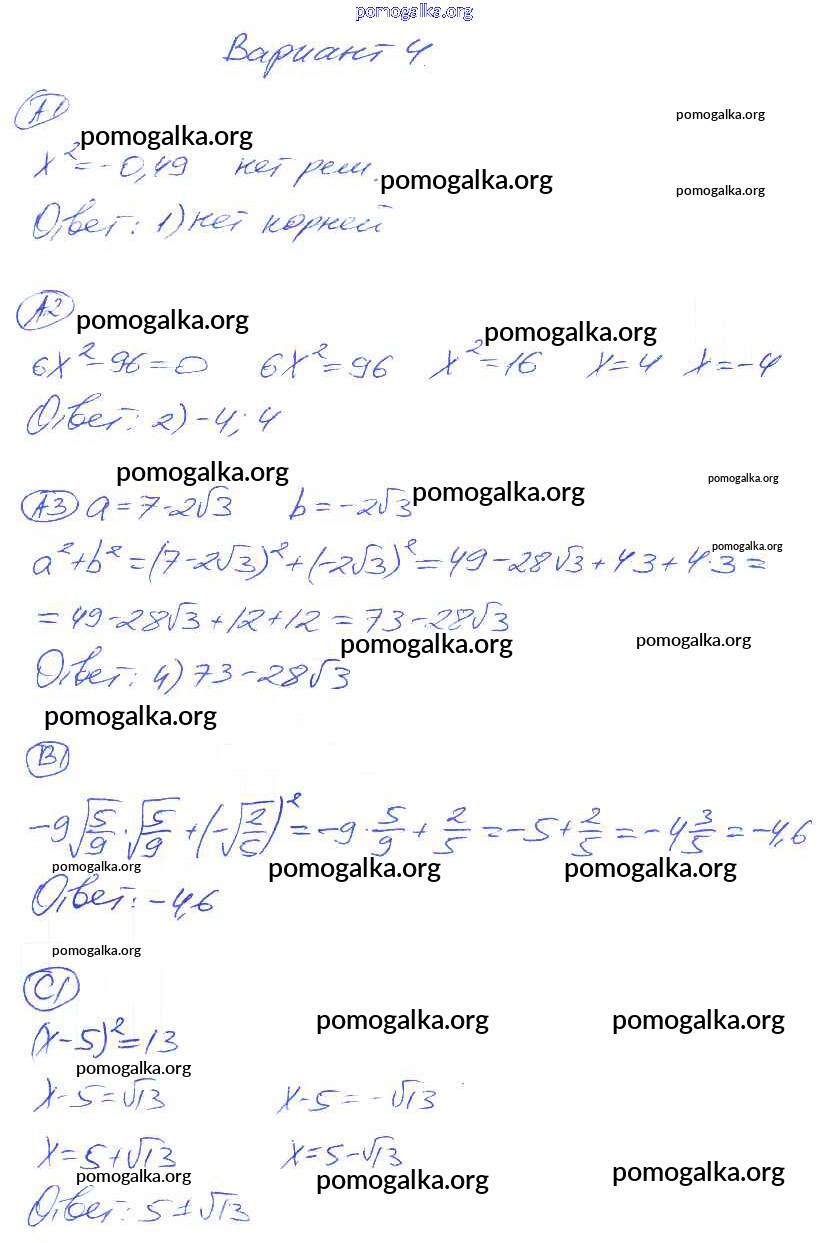 pomogalka.org
Вариант 4
А1
pomogalka.org
pomogalka.org
x² = -0,49 нет реш.
pomogalka.org
pomogalka.org
Ответ: 1) нет корней
А2
pomogalka.org
pomogalka.org
6x² - 96 = 0 6x² = 96 x² = 16 x = 4 x = -4
Ответ: 2) -4; 4
pomogalka.org
pomogalka.org
pomogalka.org
А3 a = 7 - 2√3 b = -2√3
pomogalka.org
a² + b² = (7 - 2√3)² + (-2√3)² = 49 - 28√3 + 4·3 + 4·3 =
= 49 - 28√3 + 12 + 12 = 73 - 28√3
pomogalka.org
pomogalka.org
Ответ: 4) 73 - 28√3
pomogalka.org
В1
-9√(5/9) · √(5/9) + (-√(2/5))² = -9 · 5/9 + 2/5 = -5 + 2/5 = -4 3/5 = -4,6
pomogalka.org
pomogalka.org
pomogalka.org
Ответ: -4,6
pomogalka.org
С1
pomogalka.org
pomogalka.org
(x - 5)² = 13
pomogalka.org
x - 5 = √13 x - 5 = -√13
x = 5 + √13 x = 5 - √13
pomogalka.org
pomogalka.org
pomogalka.org
Ответ: 5 ± √13